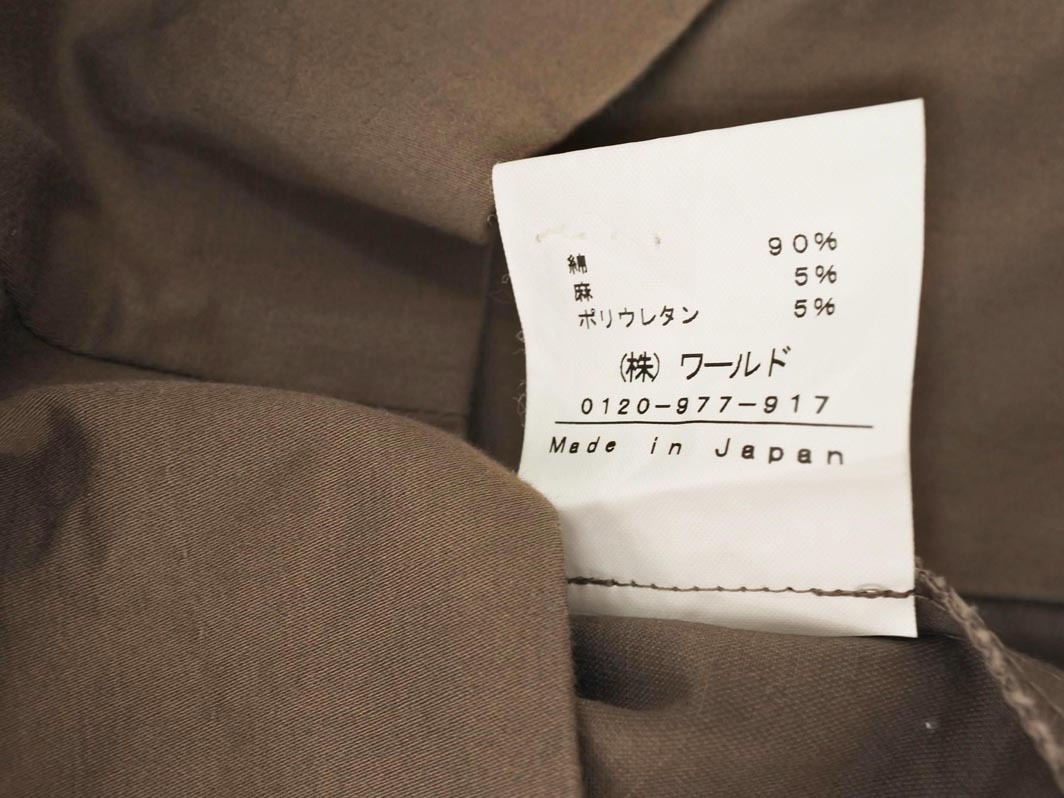 綿 90%
麻 5%
ポリウレタン 5%
(株) ワールド
0120-977-917
Made in Japan